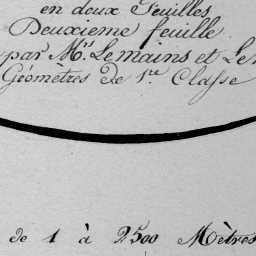 en doux Feuilles
Deuxieme feuille
par M.rs Lemains et Le
Géomètres De 1.re Classe
de 1 à 2500 Mètres